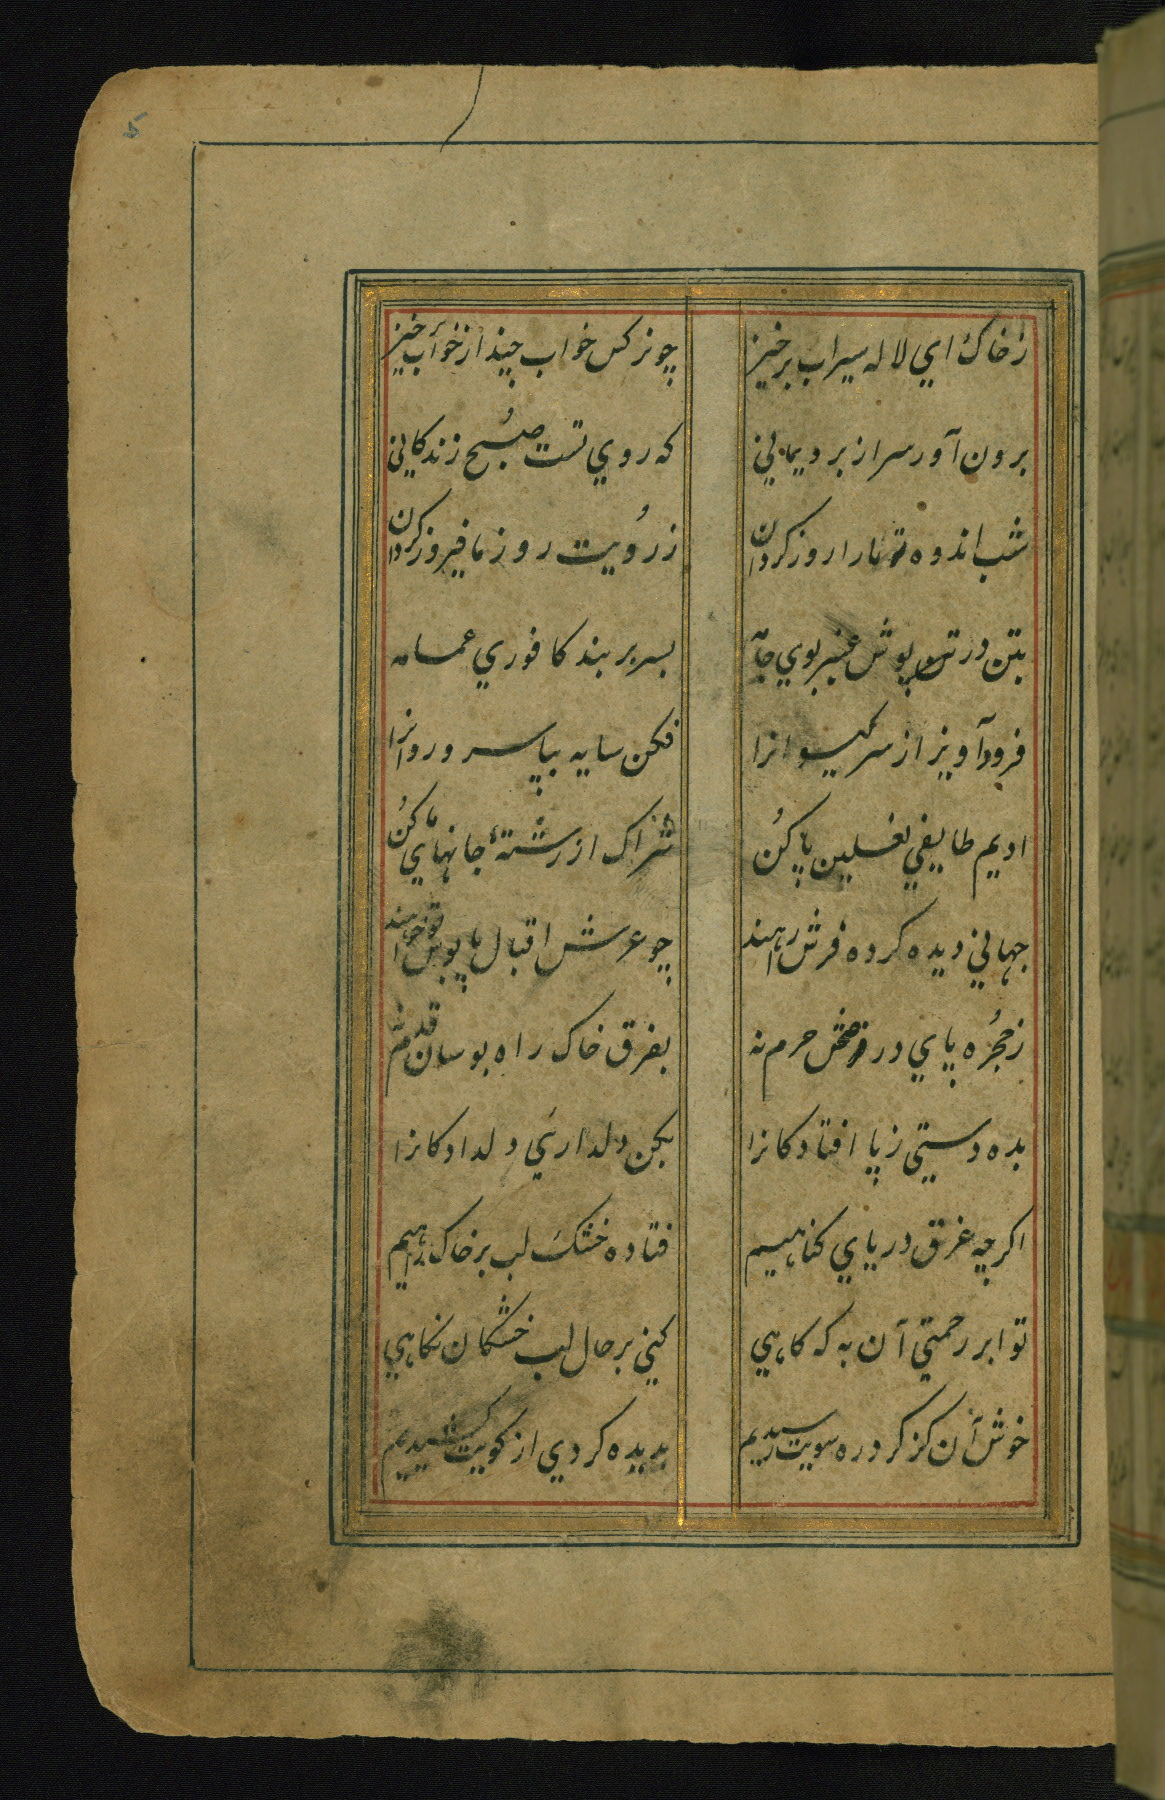 5
ز خاک ای لاله سیراب برخیز چو نرکس خواب چند از خواب خیز
برون آور سر از برد یمانی که روی تست صبح زندکانی
شب اندوه ما را روز کردان ز رویت روز ما فیروز کردان
بتن در پوش عنبر بوی جامه بسر بربند کافوری عمامه
فرود آویز از سر کیسوانرا فکن سایه بپا سرو روانرا
ادیم طایفی نعلین پا کن شراک از رشتهٔ جانهای ما کن
جهانی دیده کرده فرش راهند چو عرش اقبال پابوس تو خواهند
ز حجره پای در صحن حرم نه بفرق خاک راه بوسان قدم نه
بده دستی ز پا افتادکانرا بکن دلداریی دلدادکانرا
اکرچه غرق دریای کناهیم فتاده خشک لب بر خاک راهیم
تو ابر رحمتی آن به که کاهی کنی بر حال لب خشکان نکاهی
خوش آن کز کرد ره سویت رسیدیم بدیده کردی از کویت کشیدیم